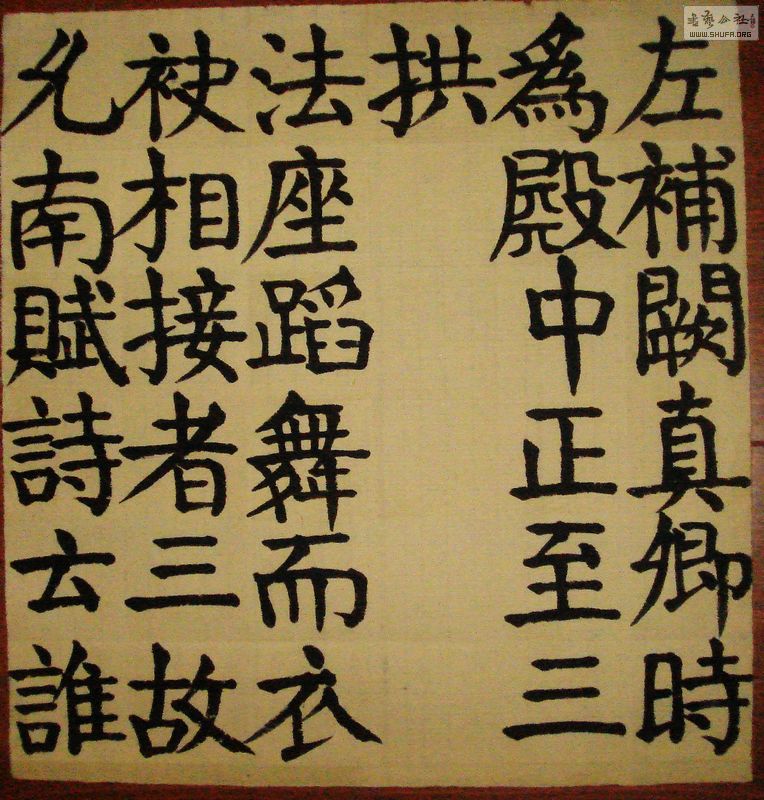 左補闕真卿時
爲殿中正至三
拱
法座蹈舞而衣
袂相接者三故
允南賦詩云誰
書藝公社
WWW.SHUFA.ORG